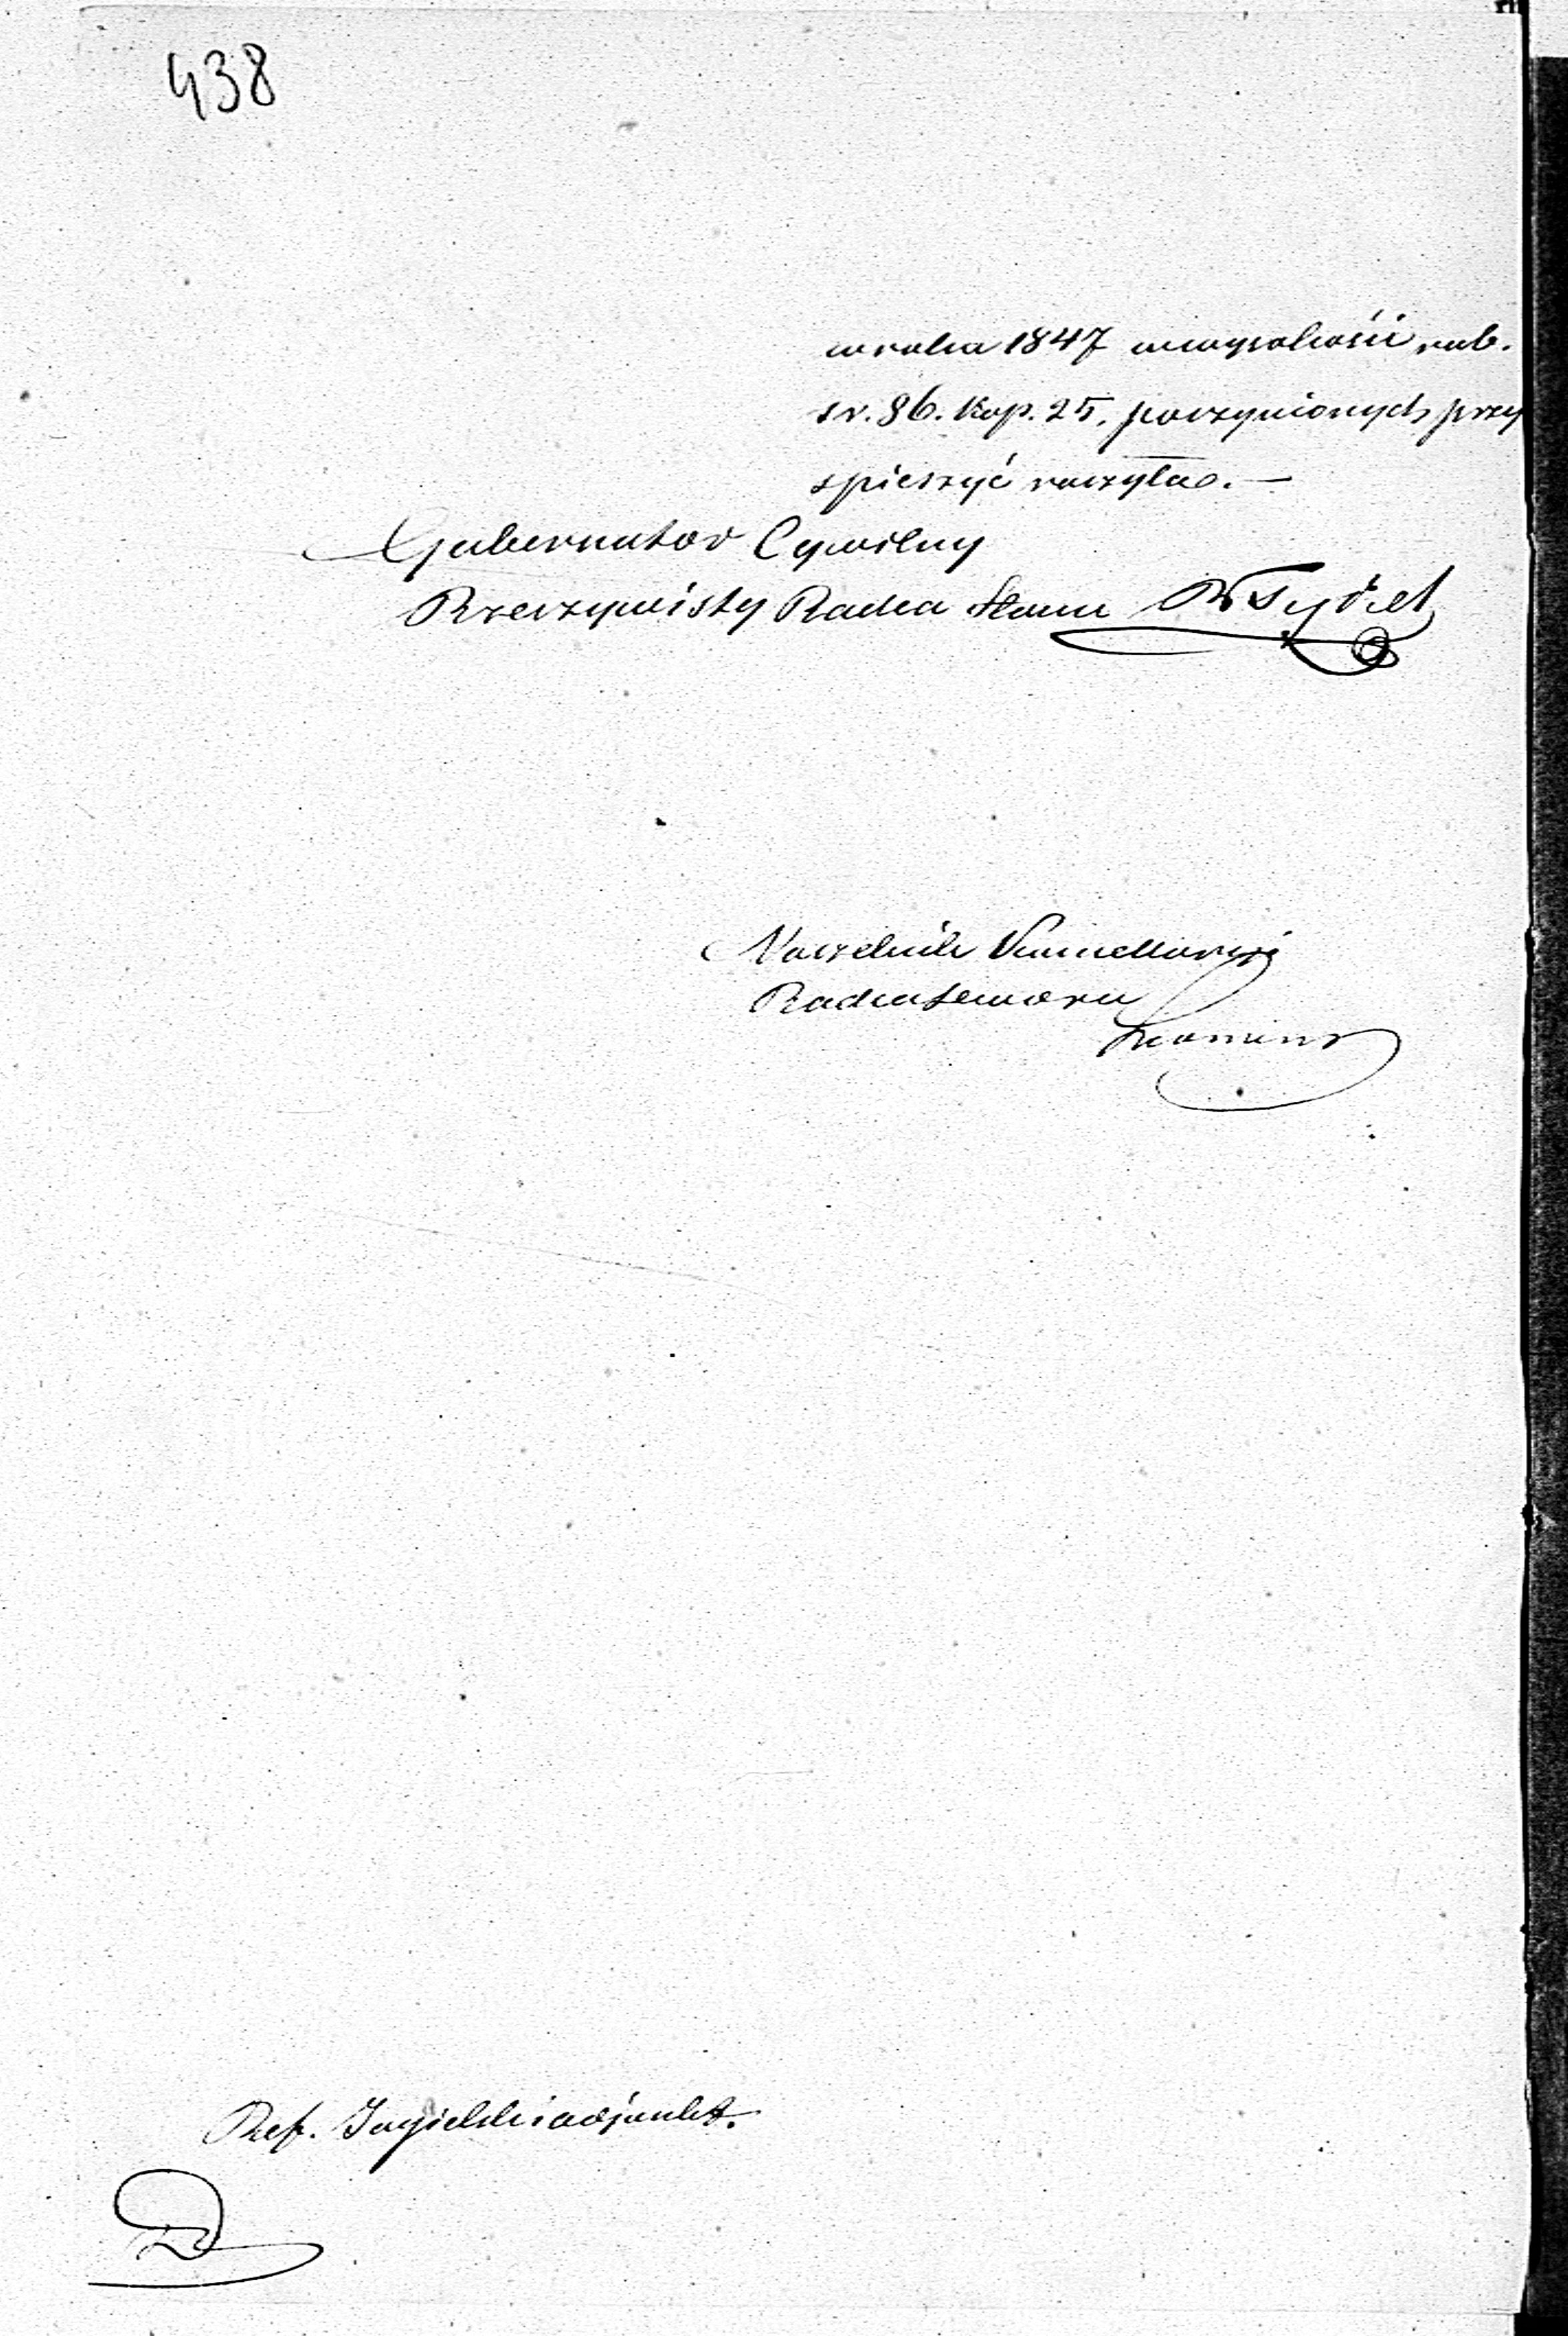 438
w roku 1847 w wysokości rub.
sr. 86. kop. 25. poczynionych przy
spieszyć raczyła. —
Gubernator Cywilny
Rzeczywisty Radca Stanu
Naczelnik Kancellaryi
Radca Honorowy
Ref. Jagielski adjunkt.